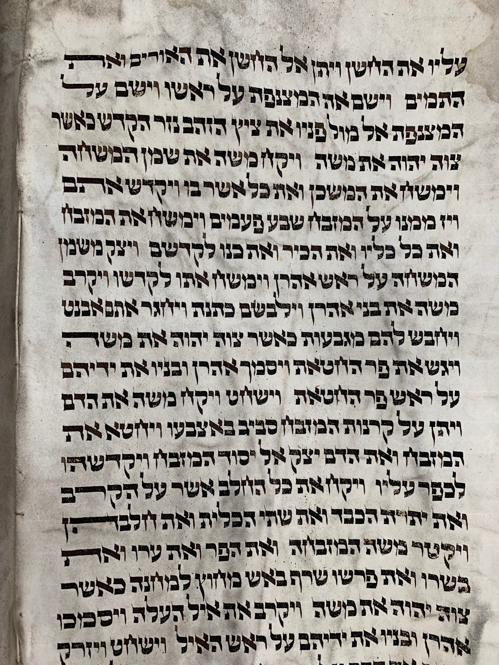 עליו את החשן ויתן אל החשן את האורים ואת
התמים וישם את המצנפת על ראשו וישם על
המצנפת אל מול פניו את ציץ הזהב נזר הקדש כאשר
צוה יהוה את משה ויקח משה את שמן המשחה
וימשח את המשכן ואת כל אשר בו ויקדש אתם
ויז ממנו על המזבח שבע פעמים וימשח את המזבח
ואת כל כליו ואת הכיר ואת כנו לקדשם ויצק משמן
המשחה על ראש אהרן וימשח אתו לקדשו ויקרב
משה את בני אהרן וילבשם כתנת ויחגר אתם אבנט
ויחבש להם מגבעות כאשר צוה יהוה את משה
ויגש את פר החטאת ויסמך אהרן ובניו את ידיהם
על ראש פר החטאת וישחט ויקח משה את הדם
ויתן על קרנות המזבח סביב באצבעו ויחטא את
המזבח ואת הדם יצק אל יסוד המזבח ויקדשהו
לכפר עליו ויקח את כל החלב אשר על הקרב
ואת יתרת הכבד ואת שתי הכלית ואת חלבהן
ויקטר משה המזבחה ואת הפר ואת ערו ואת
בשרו ואת פרשו שרף באש מחוץ למחנה כאשר
צוה יהוה את משה ויקרב את איל העלה ויסמכו
אהרן ובניו את ידיהם על ראש האיל וישחט ויזרק